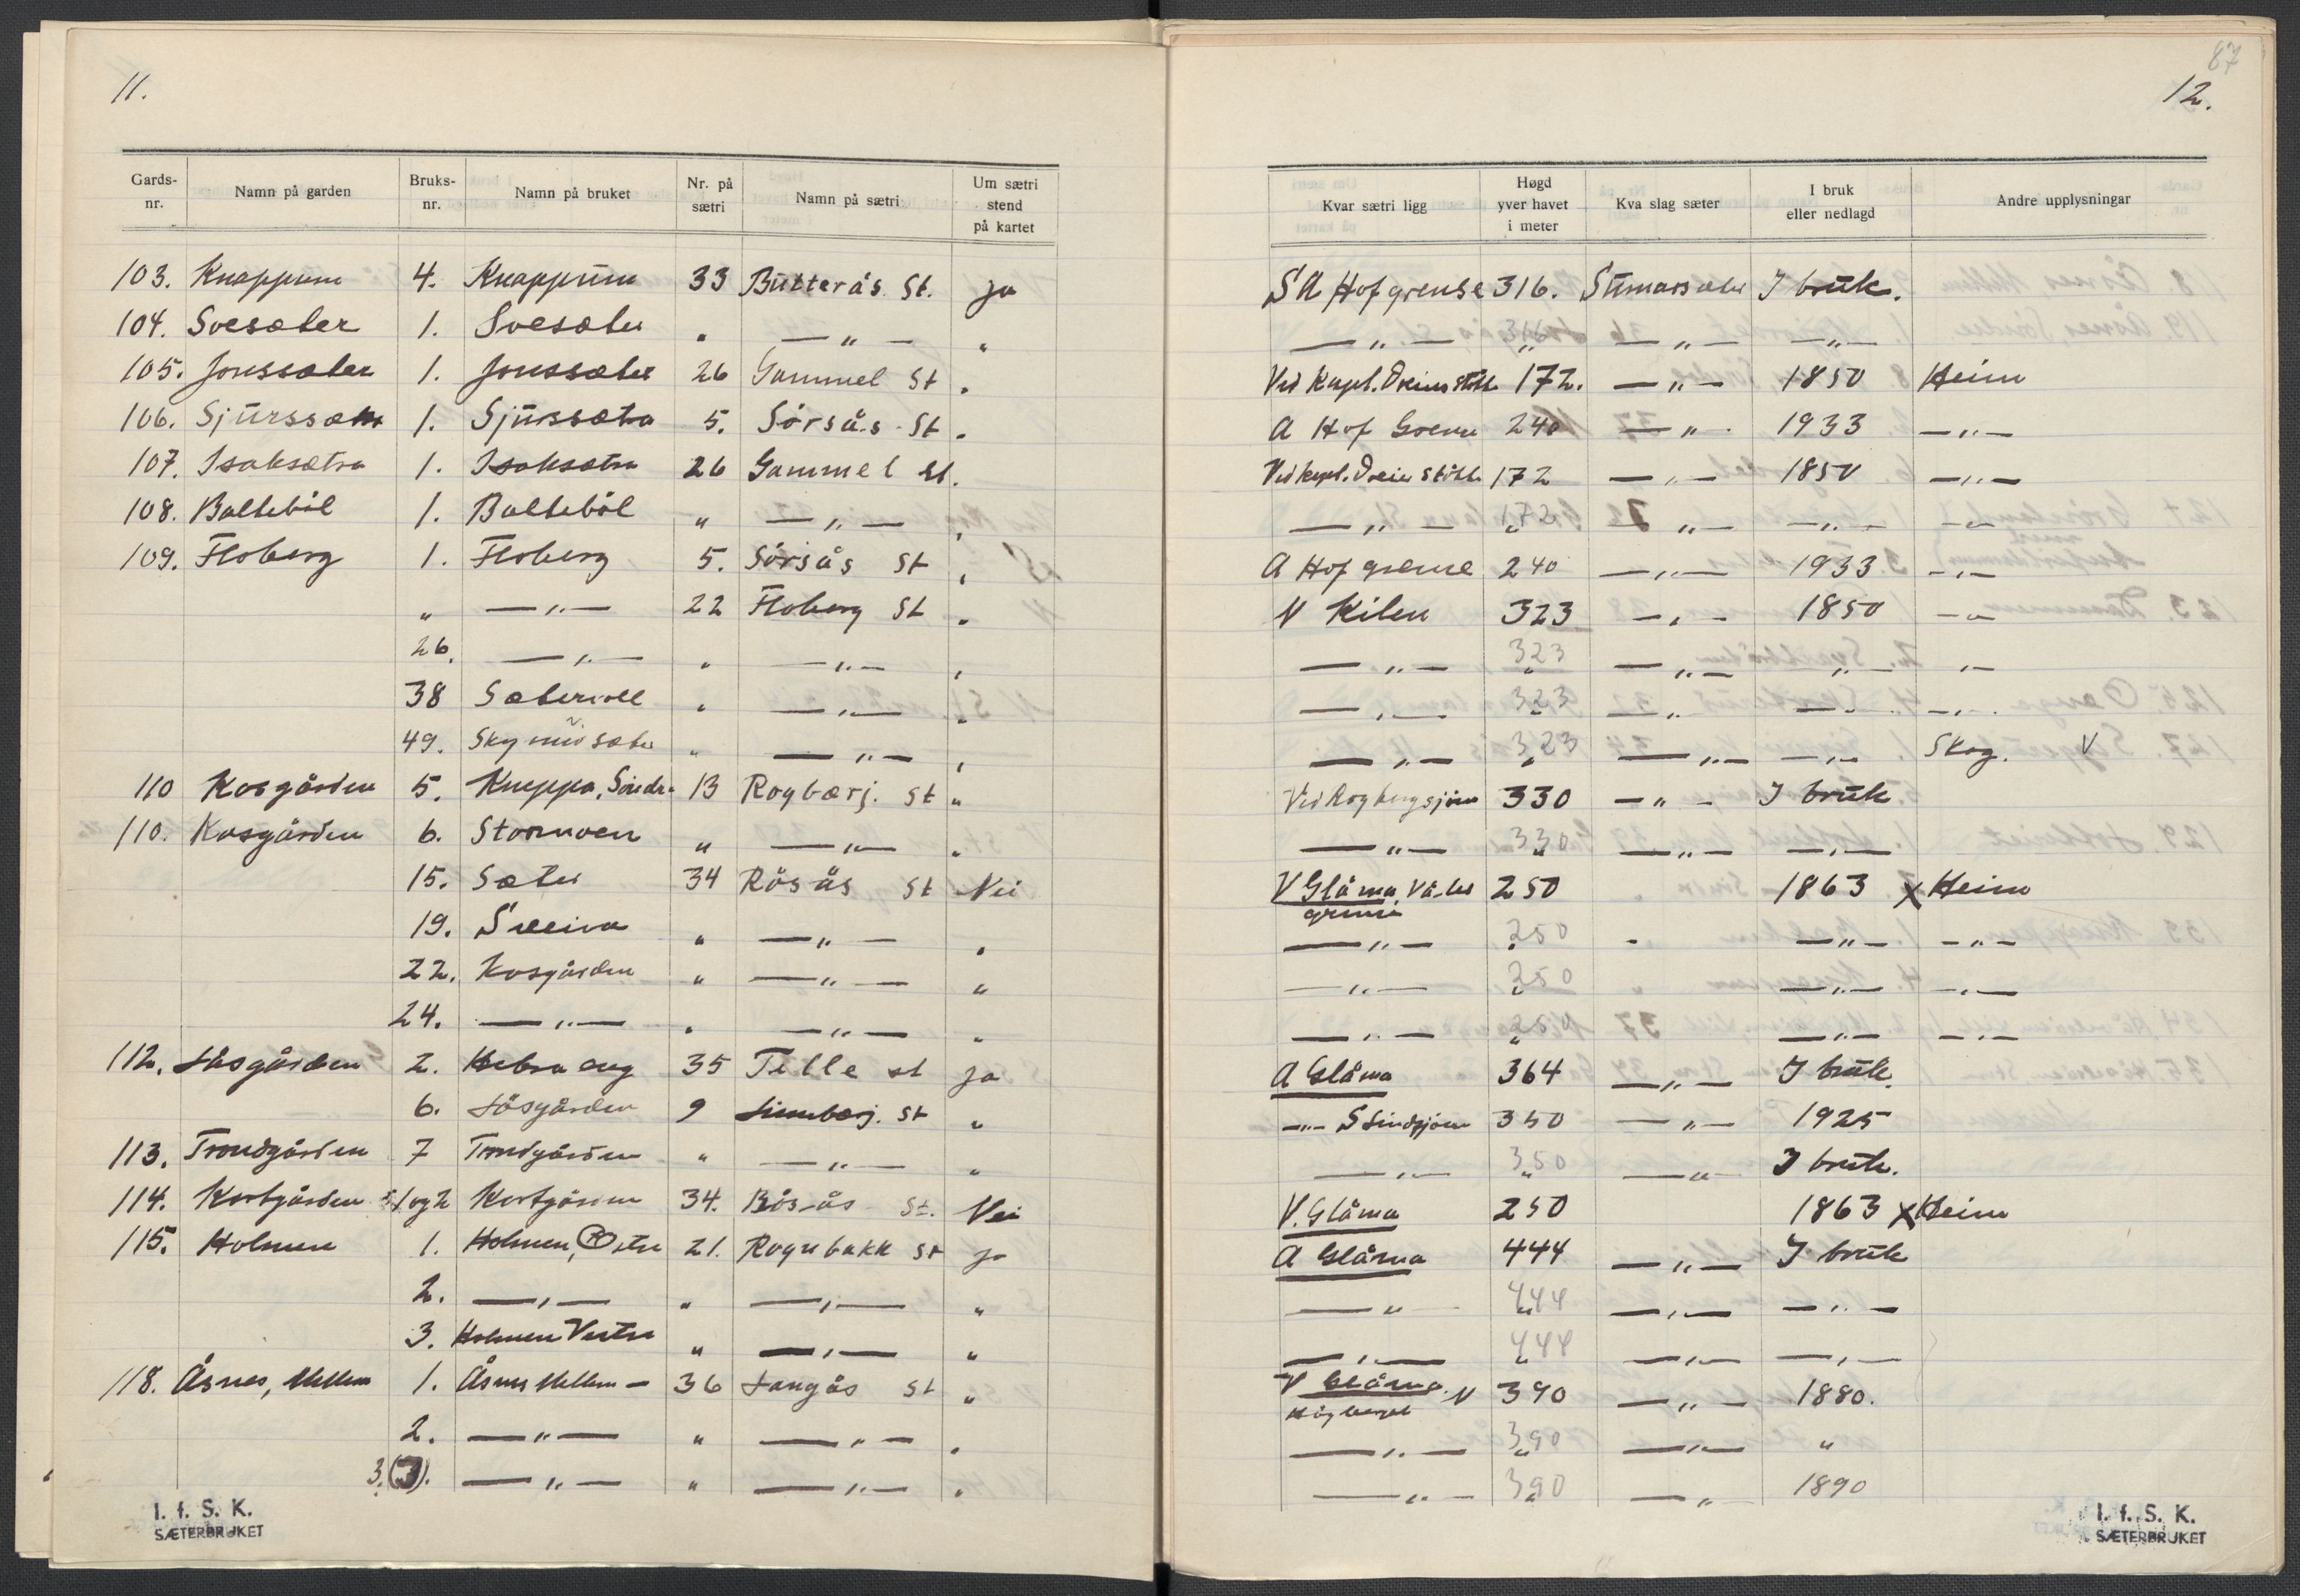 11.
Gards-nr. Namn på garden Bruks-nr. Namn på bruket Nr. på sætri Namn på sætri Um sætri stend på kartet
103. Knappum 4. Knappum 33 Butterås. St. ja
104. Svesæter 1. Svesæter " —"— "
105. Jonssæter 1. Jonssæter 26 Gammel St "
106. Sjurssætra 1. Sjurssætra 5. Sörsås St "
107. Isaksætra 1. Isaksætra 26 Gammel St.
108. Balteböl 1. Balteböl " —"— "
109. Floberg 1. Floberg 5. Sörsås St "
" —"— 22 Floberg St "
26. —"— " —"— "
38 Sætervoll " —"— "
49. " —"— "
110 Kosgården 5. Kneppa, Söndre 13 Rogbærj. St "
110. Kosgården 6. Stormoen " —"— "
15. Sæter 34 Rösås St Nei
19. " —"— "
22. Kosgården " —"— "
24. —"— " —"— "
112. Låsgården 2. 35 Tille st ja
6. Låsgården 9 St "
113. Trondgården 7 Trondgården " —"— "
114. Kortgården 1 og 2 Kortgården 34. Rösås St. Nei
115. Holmen 1. Holmen, Östre 21. Rognbakk St ja
2. —"— " —"— "
3. Holmen Vestre " —"— "
118. Åsnes, Mellem 1. Åsnes Mellem — 36 Langås St "
2. —"— " —"— "
3. (3). —"— " —"— "
I. f. S. K.
SÆTERBRUKET
87
12.
Kvar sætri ligg Høgd yver havet i meter Kva slag sæter I bruk eller nedlagd Andre upplysningar
S A Hof grense 316. Sumarsæter I bruk.
—"— 316 " —"— —"—
Ved Kapt. 172. —"— 1850 Heim
A Hof Grense 240 —"— 1933 —"—
Ved Kapt. 172 —"— 1850 —"—
—"— 172 " —"— —"— —"—
A Hof grense 240 —"— 1933 —"—
N Kilen 323 —"— 1850 —"—
—"— 323 " —"— " "—
—"— 323 " —"— —"— —"—
—"— 323 " —"— —"— Skog.
Ved Rogbergsjöen 330 —"— I bruk
—"— 330 " —"— —"—
V Glåma, Våler 250 1863 x Heim
grense
—"— 250 " " —"— —"—
—"— 250 " —"— —"—
—"— 250 " —"— —"—
A Glåma 364 —"— I bruk.
—"— S 350 —"— 1925
—"— 350 " —"— I bruk.
V. Glåma 250 1863 x Heim
A Glåma 444 —"— I bruk
—"— 444 " —"— —"—
—"— 444 " —"— —"—
V Glåma. N 390 —"— 1880.
Högberget
—"— 390 " —"— "
—"— 390 " —"— 1890
I. f. S. K.
SÆTERBRUKET